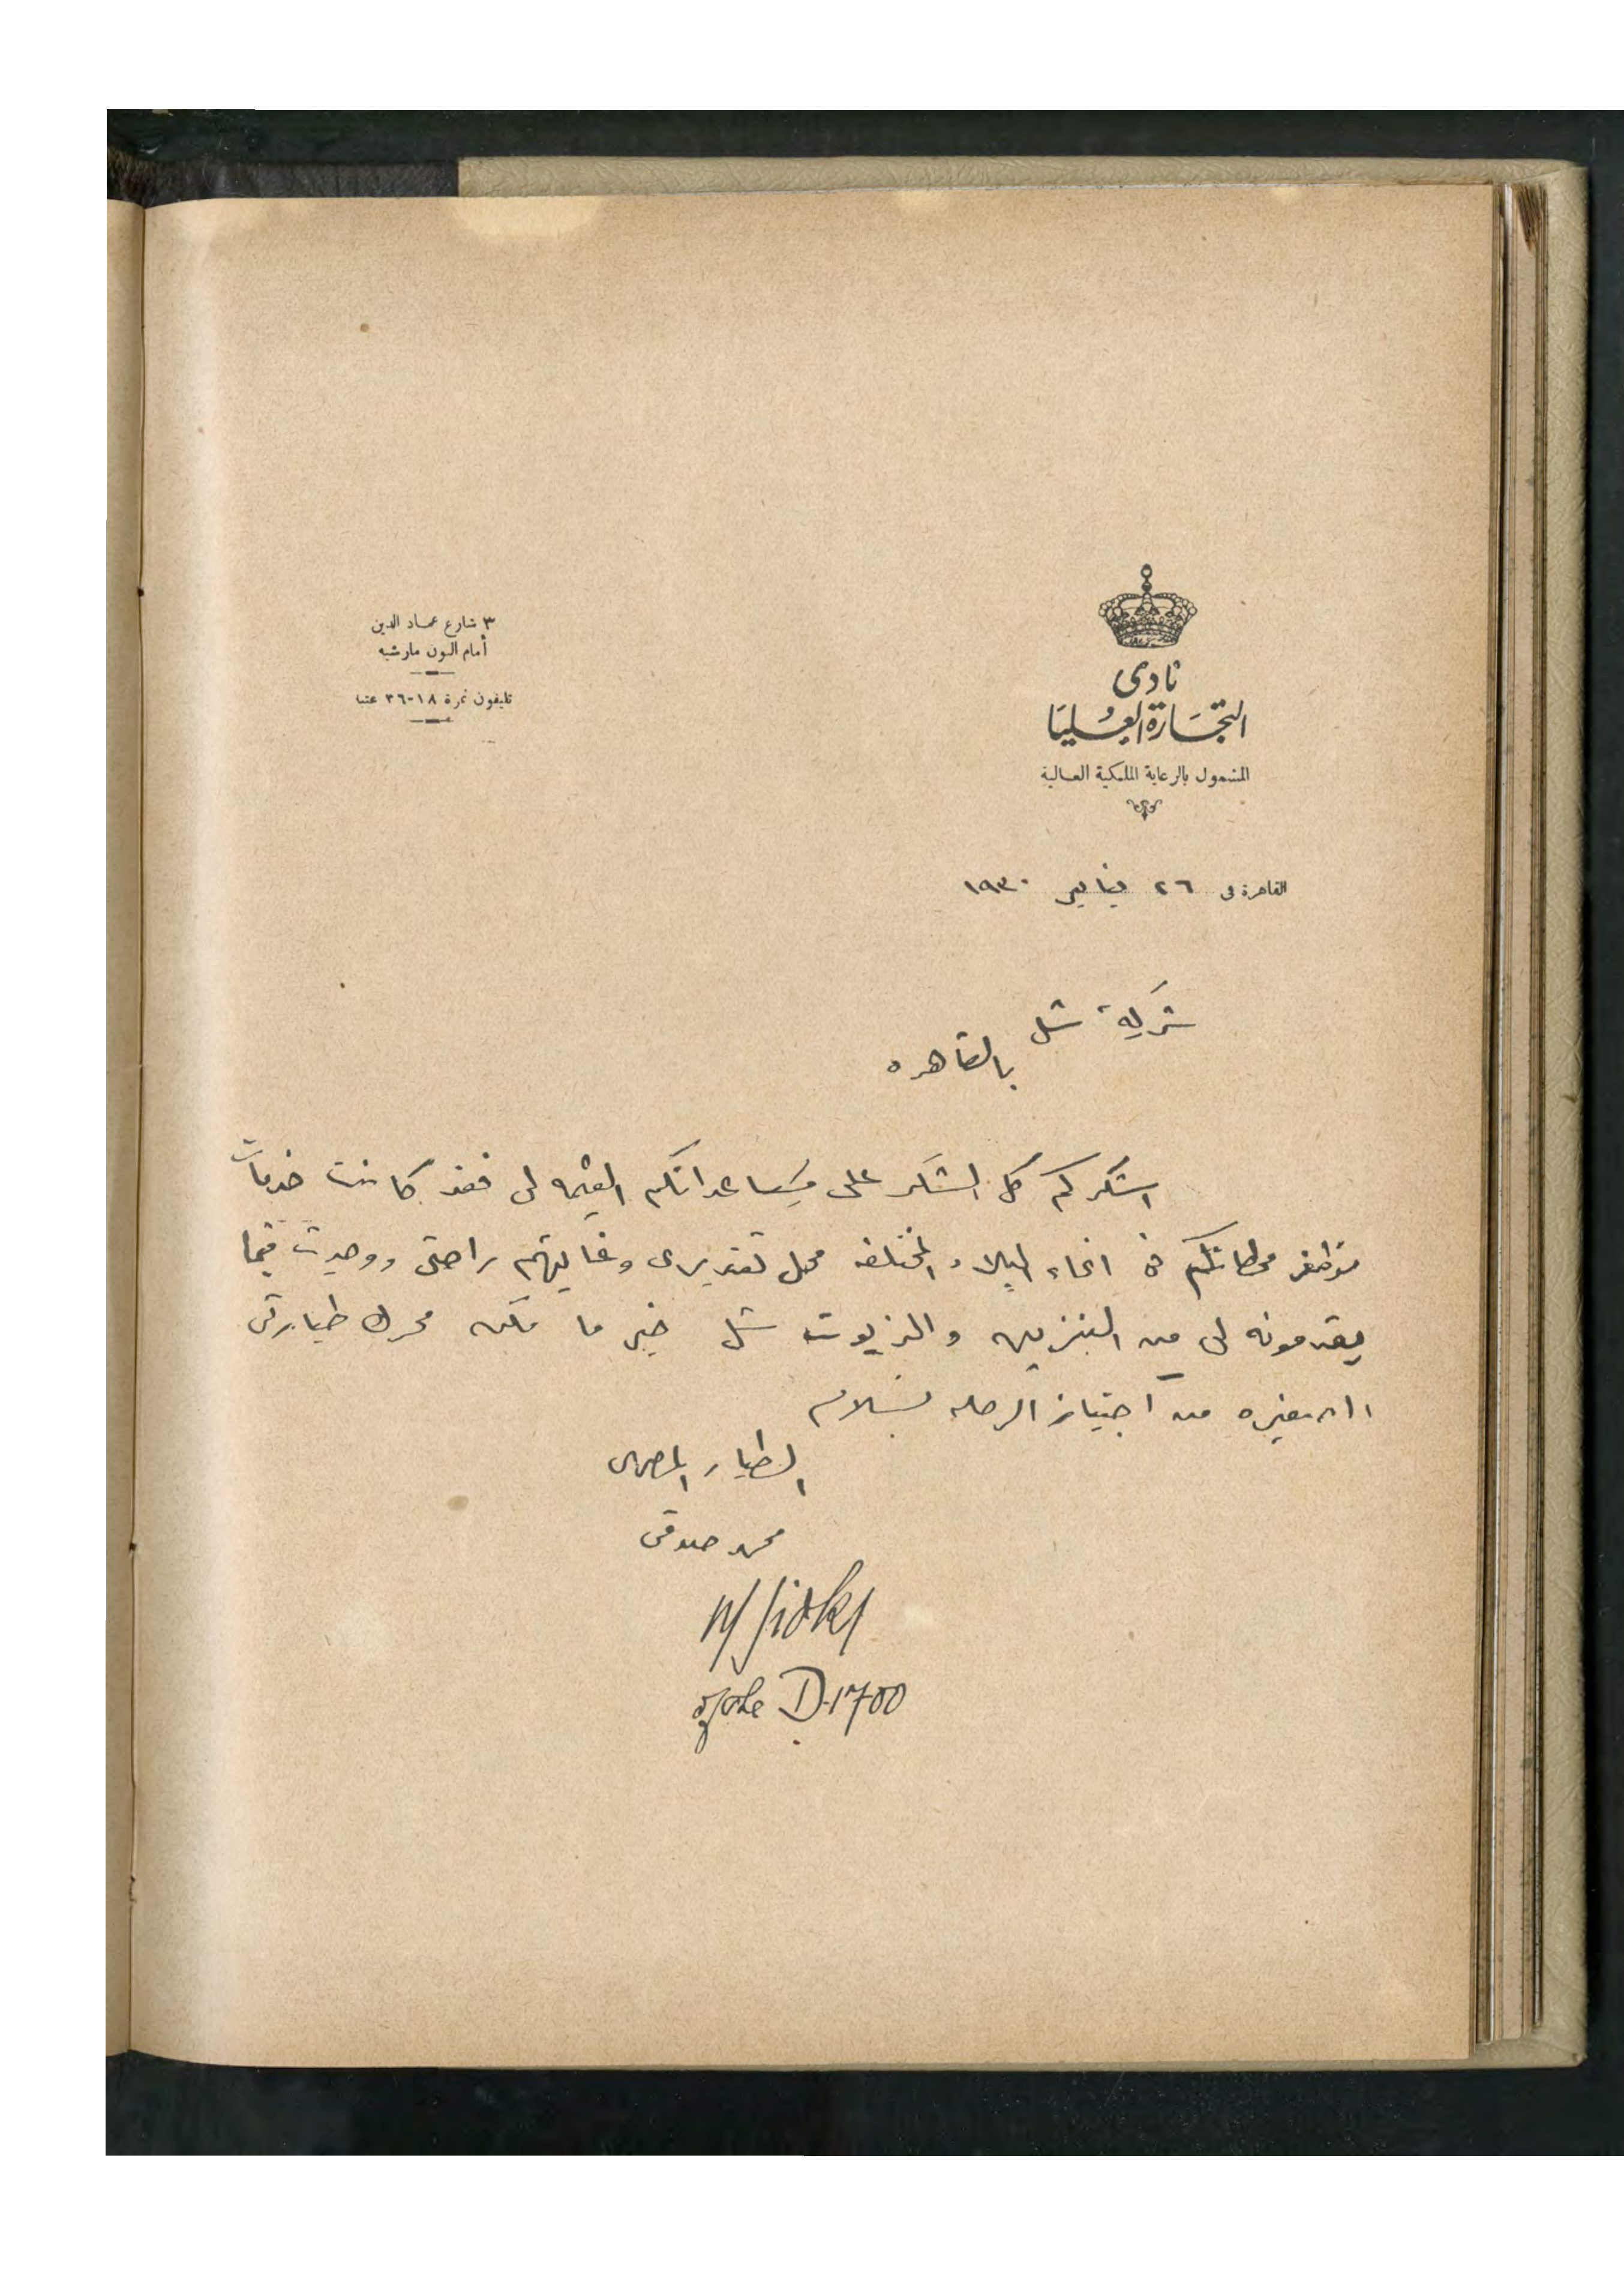 نادى
التجارة العليا
المشمول بالرعاية الملكية العالية
٣ شارع عماد الدين
أمام البون مارشيه
تليفون نمرة ١٨-٣٦ عتبا
القاهرة فى ٢٦ يناير ١٩٣٠
شركة شل
بالقاهره
اشكركم كل الشكر على مساعداتكم القيمه لى فقد كانت خدمات
موظفى محطاتكم فى انحاء البلاد المختلفه محل تقديرى وعنايتهم براحتى ووجدت فيما
يقدمونه لى من البنزين والزيوت شل خير ما مكن محرك طيارتى
الصغيره من اجتياز الرحله بسلام
الطيار المصرى
محمد صدقى
M Sidki
D.1700